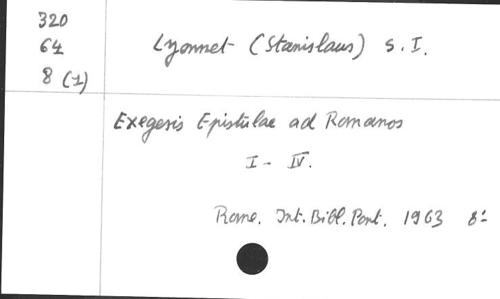 320
64
8 (1)
Lyonnet (Stanislaus) S. I.
Exegesis Epistulae ad Romanos
I - IV.
Rome. Int. Bibl. Pont. 1963 8°